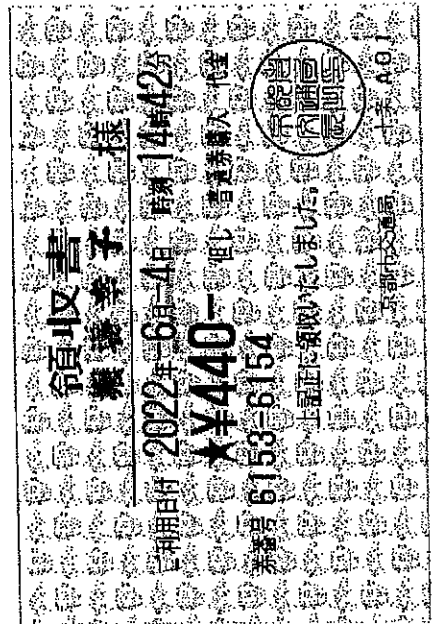 領収書
様
ご利用日付 2022年-6月-4日 時刻 14時42分
★¥440- 但し 普通券購入 代金
券番号 6153-6154
上記正に領収いたしました。
京都市交通局 十条 A01